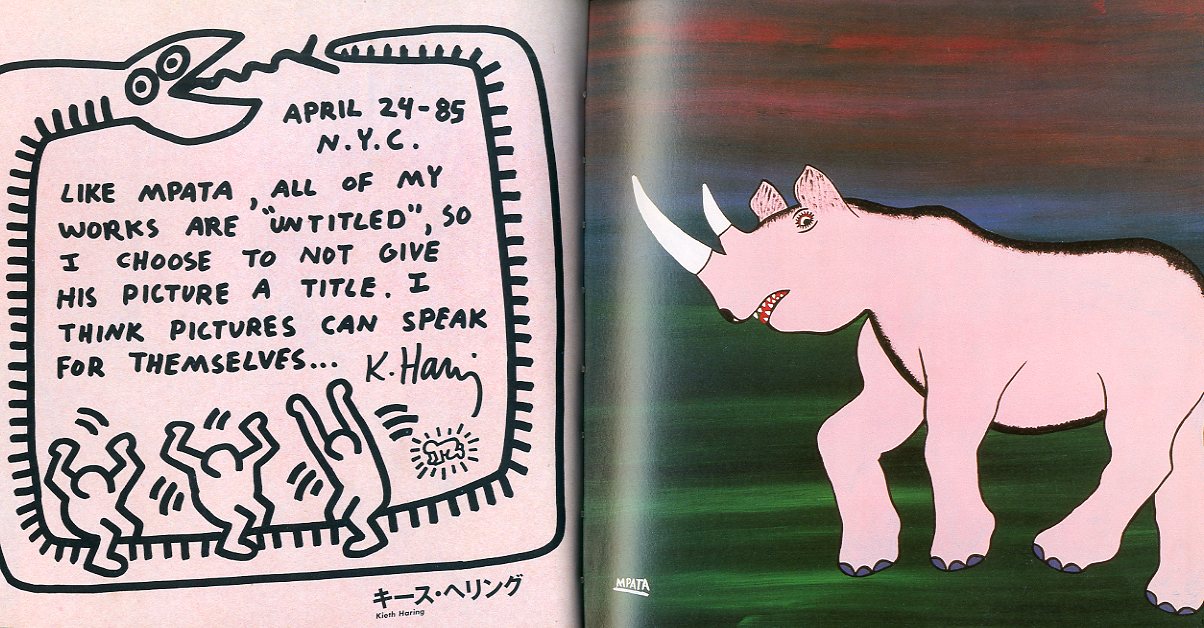 APRIL 24-85
N.Y.C.
LIKE MPATA, ALL OF MY
WORKS ARE "UNTITLED", SO
I CHOOSE TO NOT GIVE
HIS PICTURE A TITLE. I
THINK PICTURES CAN SPEAK
FOR THEMSELVES...
K. Haring
キース・ヘリング
Kieth Haring
MPATA